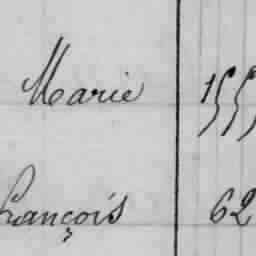 Marie 155
François 62